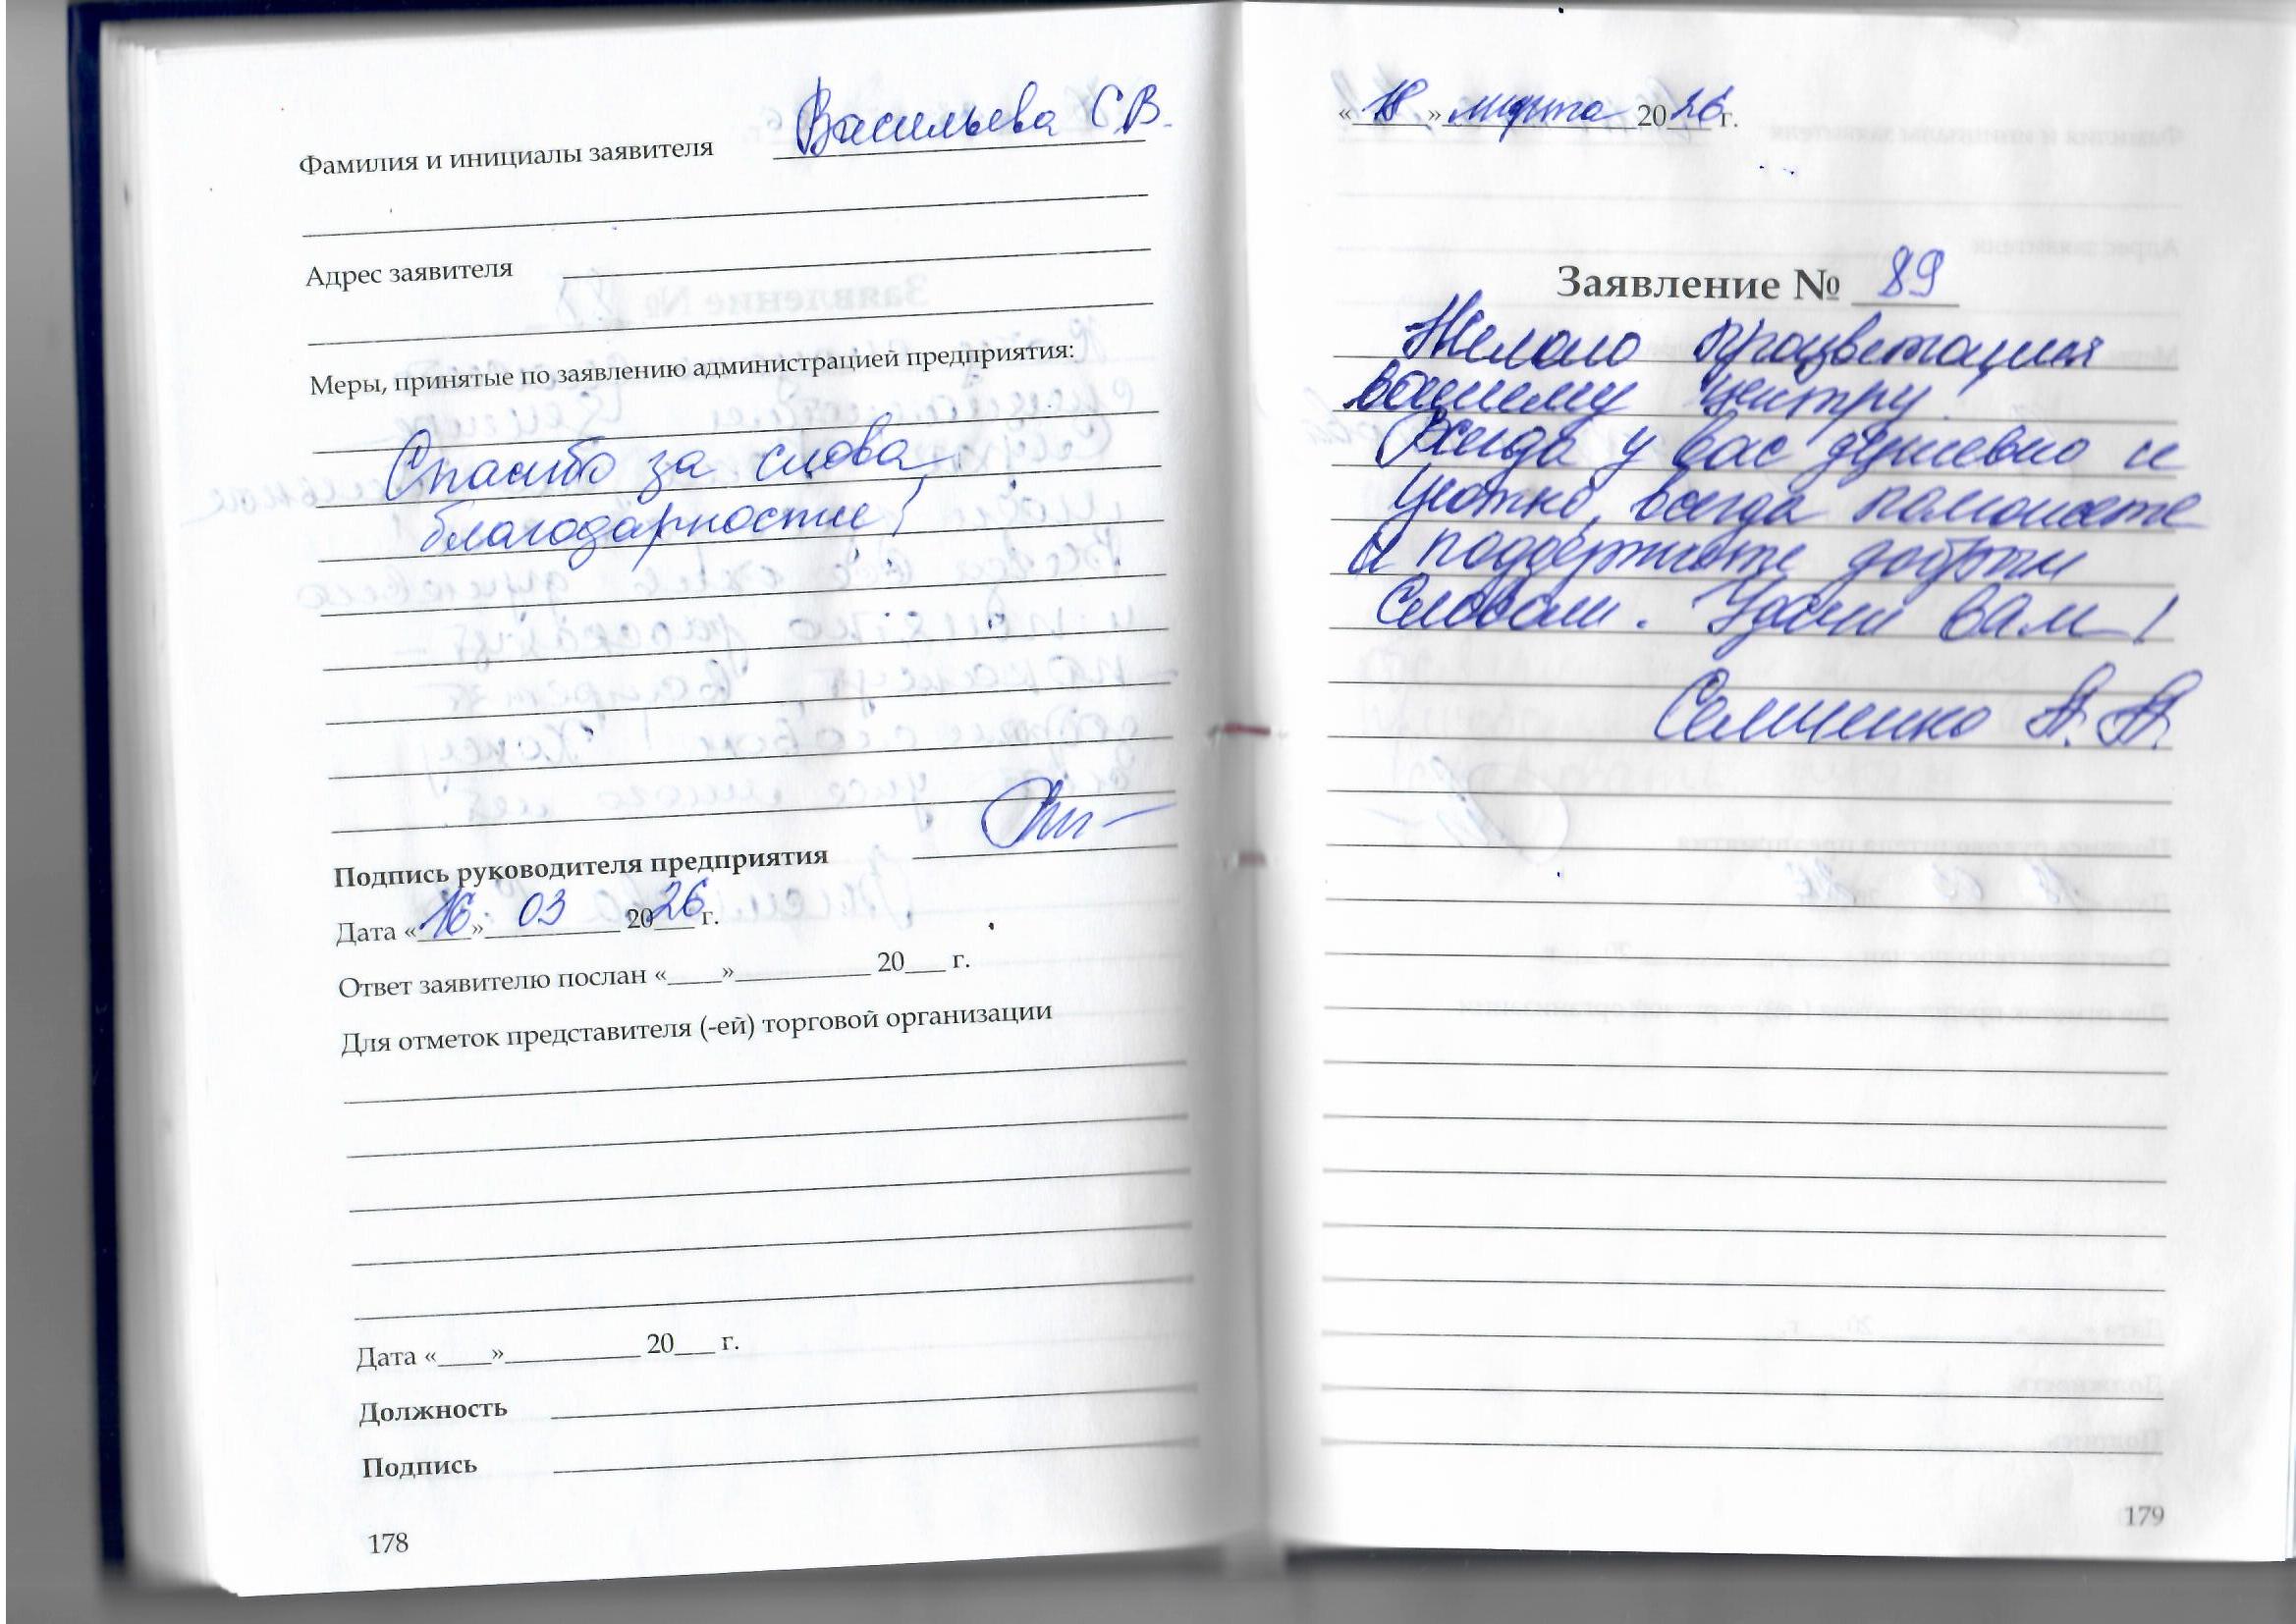 Фамилия и инициалы заявителя Васильева С.В.
Адрес заявителя
Меры, принятые по заявлению администрацией предприятия:
Спасибо за слова
благодарности!
Подпись руководителя предприятия
Дата «16» 03 2026 г.
Ответ заявителю послан «____»__________ 20___ г.
Для отметок представителя (-ей) торговой организации
Дата «____»__________ 20___ г.
Должность
Подпись
178
«18» марта 2026 г.
Заявление № 89
Желаю процветания
вашему центру!
Всегда у вас душевно и
уютно, всегда поможете
и поддержите добрым
словом. Удачи вам!
Семченко А.А.
179